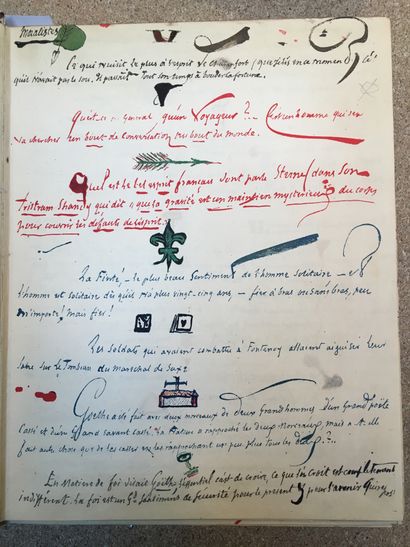 Moralistes
Ce qui nuisit le plus à l'esprit de Chamfort (que je lis en ce moment) c'est
qu'il n'avait pas le sou. Il passait tout son temps à bouder la fortune.
Qu'est-ce en général qu'un Voyageur? — C'est un homme qui s'en
va chercher un bout de conversation au bout du monde.
Quel est le bel esprit français dont parle Sterne dans son
Tristram Shandy qui dit « que la gravité est un maintien mystérieux du corps
pour couvrir les défauts de l'esprit.
La Fierté, — le plus beau Sentiment de l'homme solitaire — Et
l'homme est solitaire dès qu'il n'a plus vingt-cinq ans, — fier à bras ou sans bras, peu
m'importe! Mais fier!
Les Soldats qui avaient combattu à Fontenoy allaient aiguiser leur
sabre sur le Tombeau du Maréchal de Saxe
Goethe a été fait avec deux morceaux de deux Grands hommes. D'un Grand poète
cassé et d'un Grand savant cassé. La Nature a rapproché les deux Morceaux mais a-t-elle
fait autre chose que de les casser en les rapprochant un peu plus tous les deux?..
En Matière de foi disait Goethe l'essentiel c'est de croire, ce que l'on croit est complètement
indifférent. La foi est un Gd sentiment de sécurité pour le présent et pour l'avenir